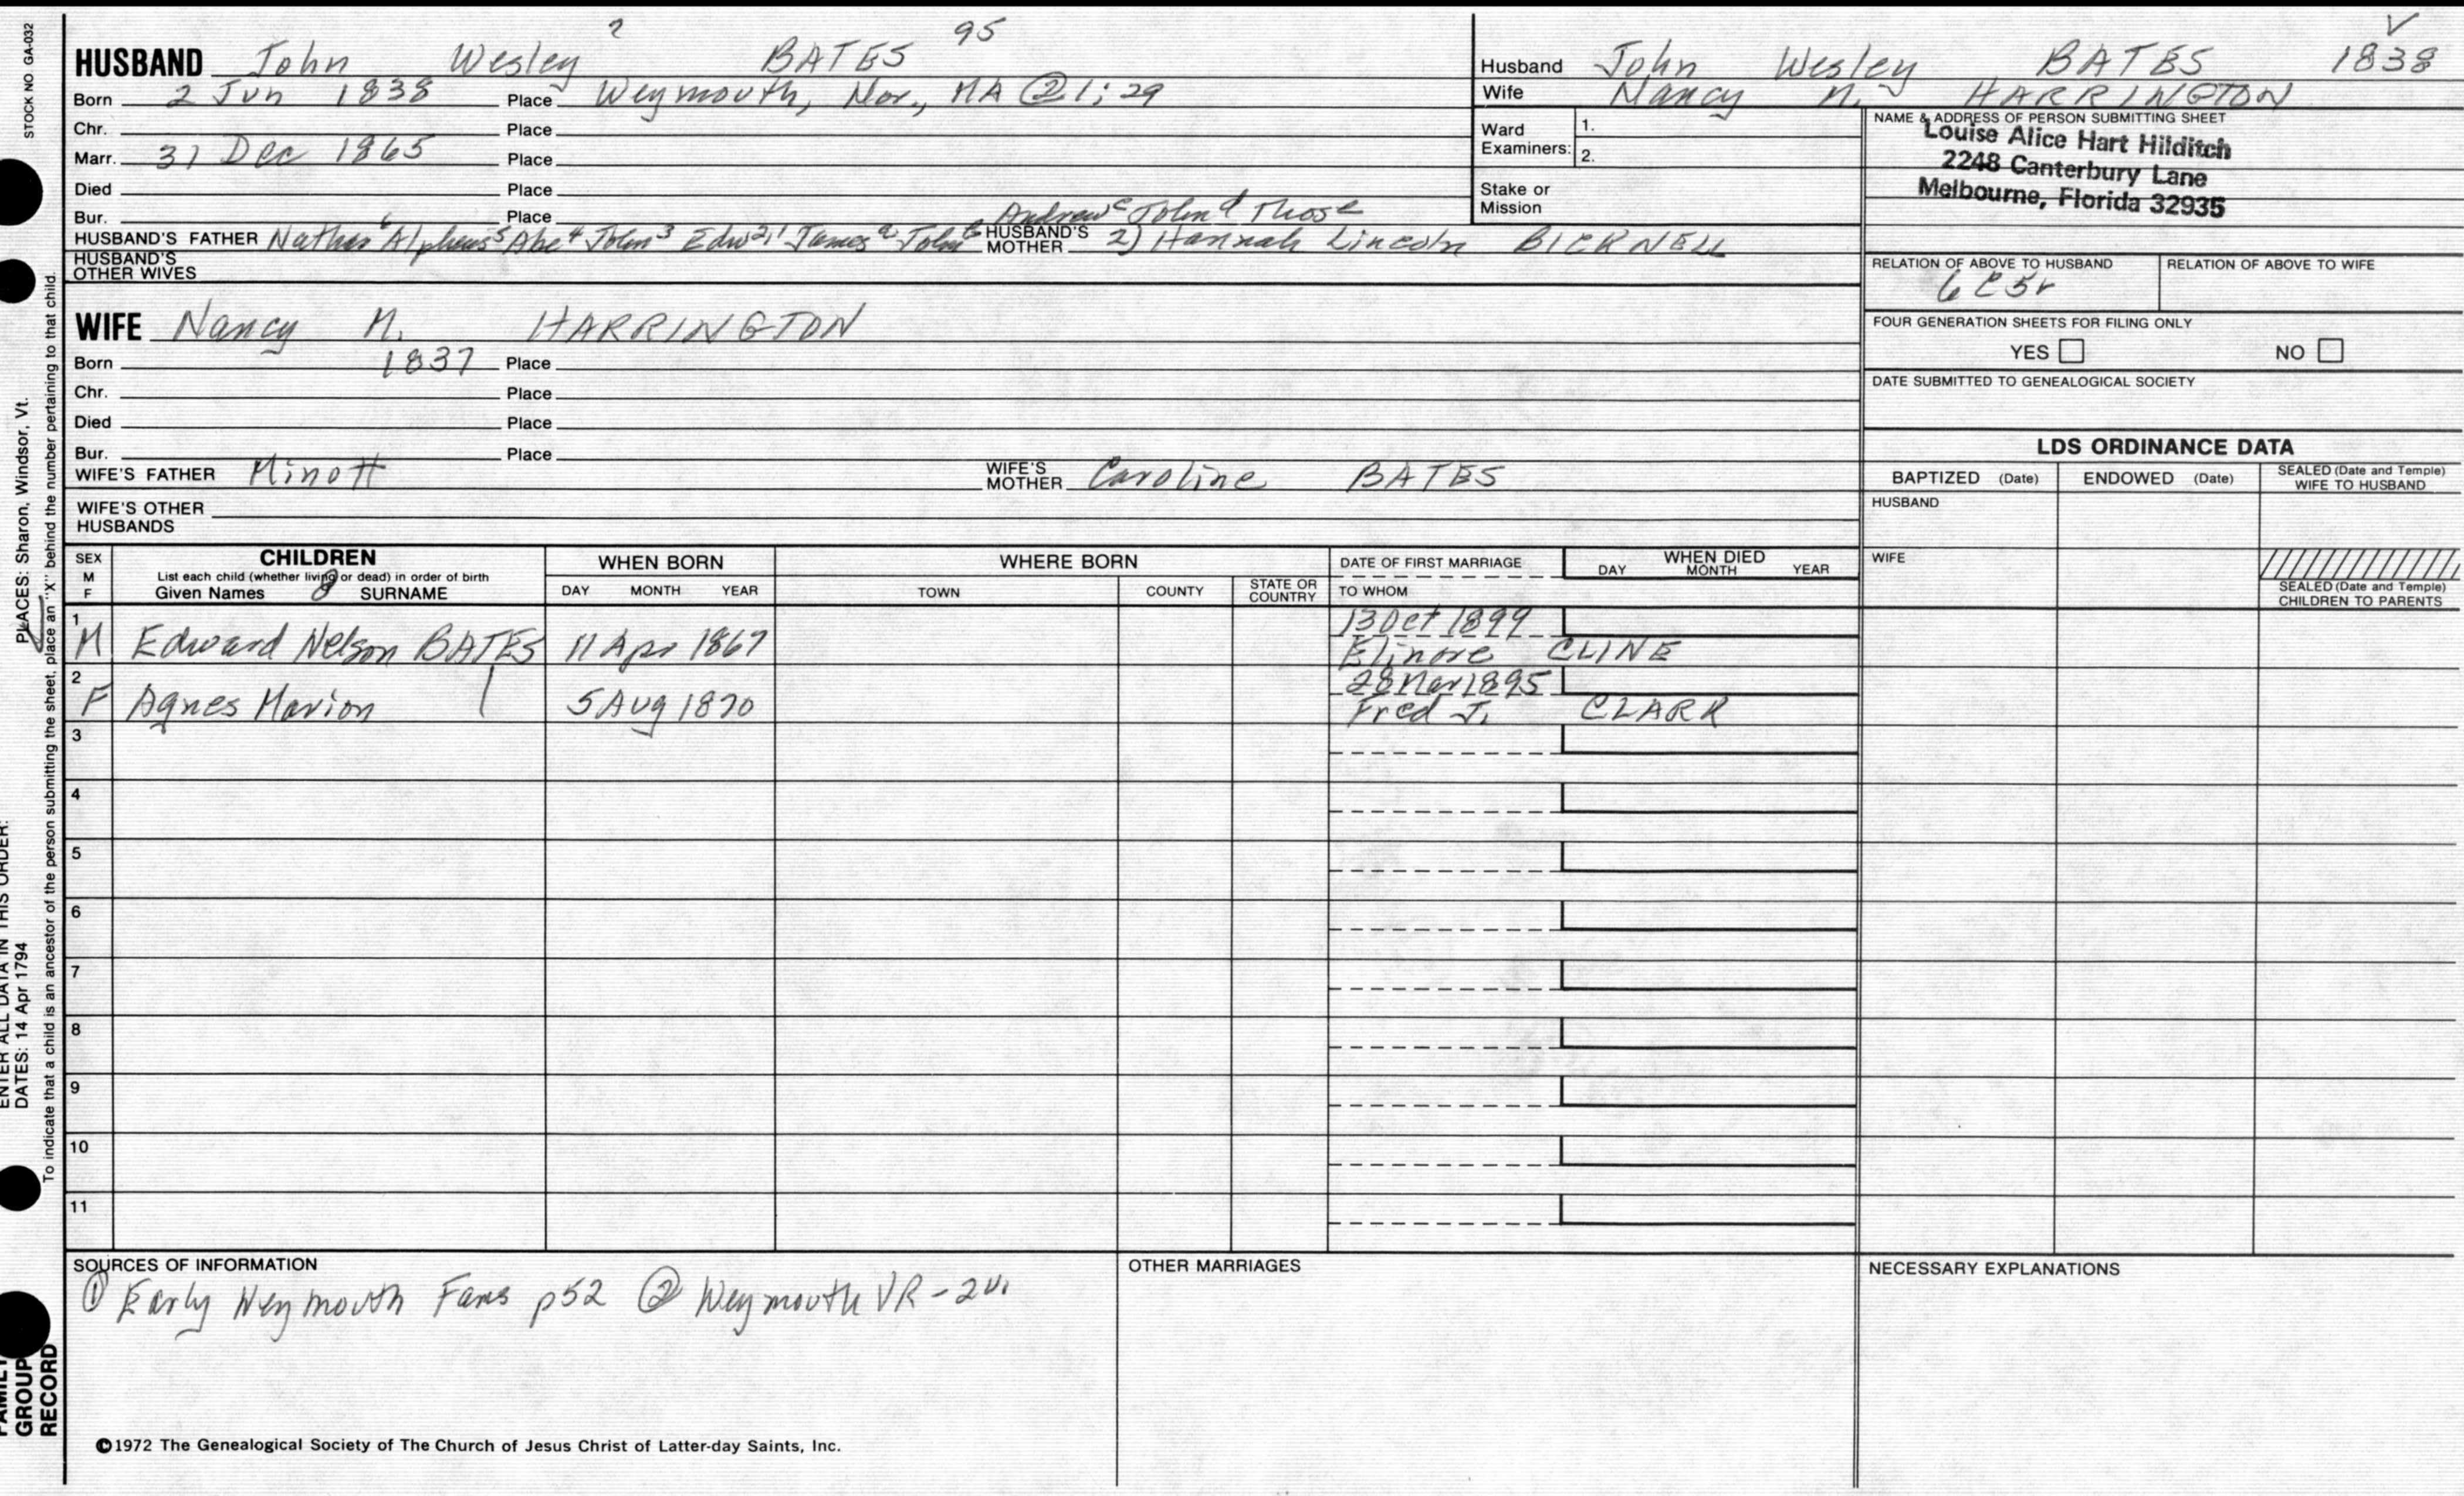 STOCK NO. GA-032
HUSBAND John Wesley 7 BATES 95
Born 2 Jun 1838 Place Weymouth, Nor., MA @1:29
Chr. Place
Marr. 31 Dec 1865 Place
Died Place
Bur. Place
Andrew c John d Thos e
HUSBAND'S FATHER Nathan 6 Alpheus 5 Abe 4 John 3 Edw 2,1 James a John b HUSBAND'S MOTHER 2) Hannah Lincoln BICKNELL
HUSBAND'S OTHER WIVES
WIFE Nancy M. HARRINGTON
Born 1837 Place
Chr. Place
Died Place
Bur. Place
WIFE'S FATHER Minott WIFE'S MOTHER Caroline BATES
WIFE'S OTHER HUSBANDS
Husband John Wesley BATES 1838
Wife Nancy M. HARRINGTON
Ward Examiners: 1.
2.
Stake or Mission
NAME & ADDRESS OF PERSON SUBMITTING SHEET
Louise Alice Hart Hilditch
2248 Canterbury Lane
Melbourne, Florida 32935
RELATION OF ABOVE TO HUSBAND RELATION OF ABOVE TO WIFE
6C5r
FOUR GENERATION SHEETS FOR FILING ONLY
YES NO
DATE SUBMITTED TO GENEALOGICAL SOCIETY
LDS ORDINANCE DATA
BAPTIZED (Date) ENDOWED (Date) SEALED (Date and Temple) WIFE TO HUSBAND
HUSBAND
WIFE
SEALED (Date and Temple) CHILDREN TO PARENTS
SEX M F CHILDREN WHEN BORN WHERE BORN DATE OF FIRST MARRIAGE WHEN DIED
List each child (whether living or dead) in order of birth
Given Names 8 SURNAME DAY MONTH YEAR TOWN COUNTY STATE OR COUNTRY TO WHOM DAY MONTH YEAR
1 13 Oct 1899
M Edward Nelson BATES 11 Apr 1867 Elinore CLINE
2 28 Mar 1895
F Agnes Marion 5 Aug 1870 Fred J. CLARK
3
4
5
6
7
8
9
10
11
SOURCES OF INFORMATION OTHER MARRIAGES NECESSARY EXPLANATIONS
① Early Weymouth Fams p52 ② Weymouth VR - 2v.
©1972 The Genealogical Society of The Church of Jesus Christ of Latter-day Saints, Inc.
FAMILY GROUP RECORD
ENTER ALL DATA IN THIS ORDER:
DATES: 14 Apr 1794 PLACES: Sharon, Windsor, Vt.
To indicate that a child is an ancestor of the person submitting the sheet, place an "X" behind the number pertaining to that child.